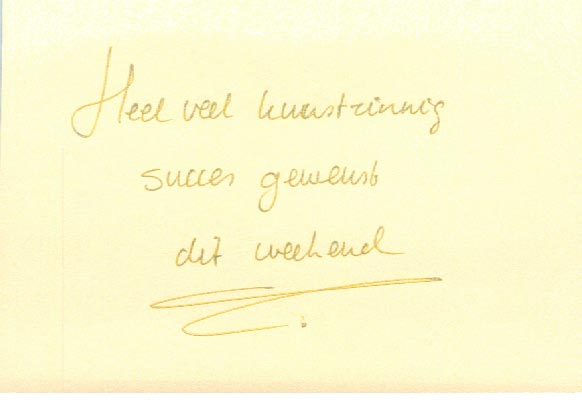 Heel veel kunstzinnig
succes gewenst
dit weekend